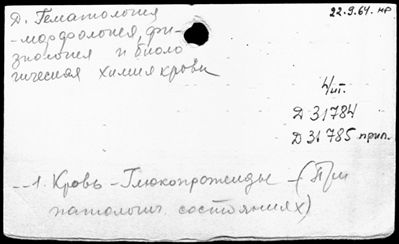 Д. Гематология
22.9.64. нр
-морфология, фи-
зиология и биоло
гическая химия крови
4 ит.
Д 31784
Д 31785 прил.
--1. Кровь - Глюкопротеиды - (При
патологич. состояниях)